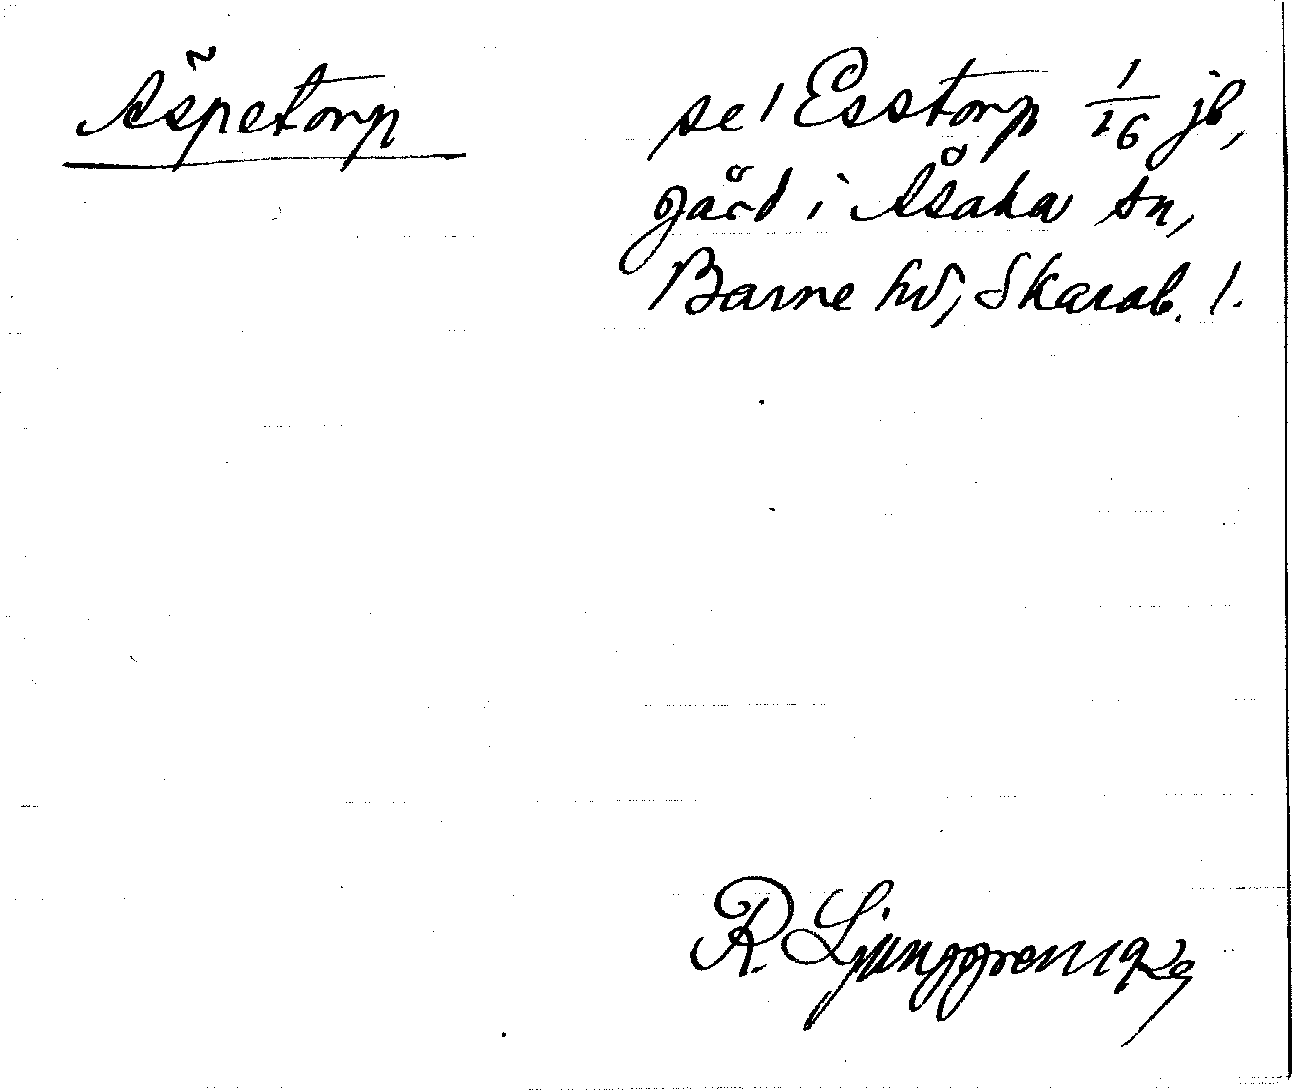 Äspetorp
se! Esstorp 1/16 jb,
gård i Åsaka sn,
Barne hd, Skarab. l.
R. Ljunggren 1929